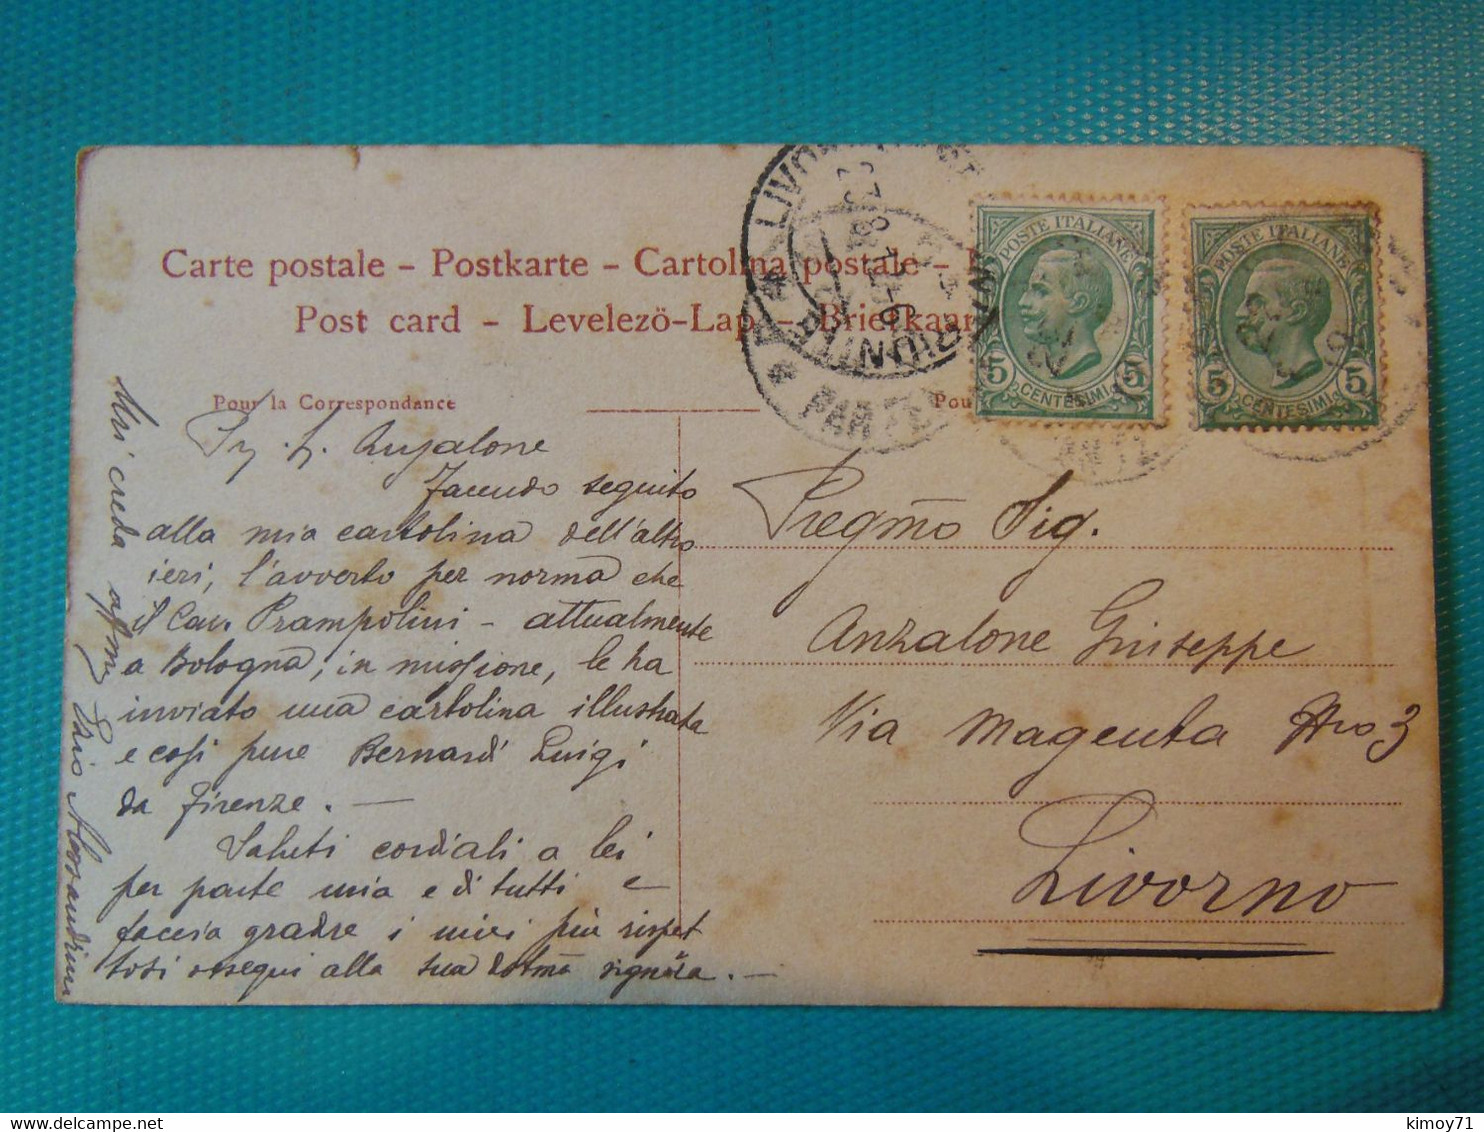 Carte postale – Postkarte – Cartolina postale –
Post card – Levelezö-Lap – Briefkaar
Pour la Correspondance
Pou
POSTE ITALIANE
5 5
CENTESIMI
POSTE ITALIANE
5 5
CENTESIMI
LIVO
PARTENZA
Anzalone
Facendo seguito
alla mia cartolina dell'altro
ieri, l'avverto per norma che
il Cav. Prampolini – attualmente
a Bologna, in missione, le ha
inviato una cartolina illustrata
e così pure Bernardi Luigi
da Firenze. —
Saluti cordiali a lei
per parte mia e di tutti e
faccia gradire i miei più rispet
tosi ossequi alla sua signora. —
Mi creda
Suo Alessandrini
Pregmo Sig.
Anzalone Giuseppe
Via Magenta Nro 3
Livorno
kimoy71